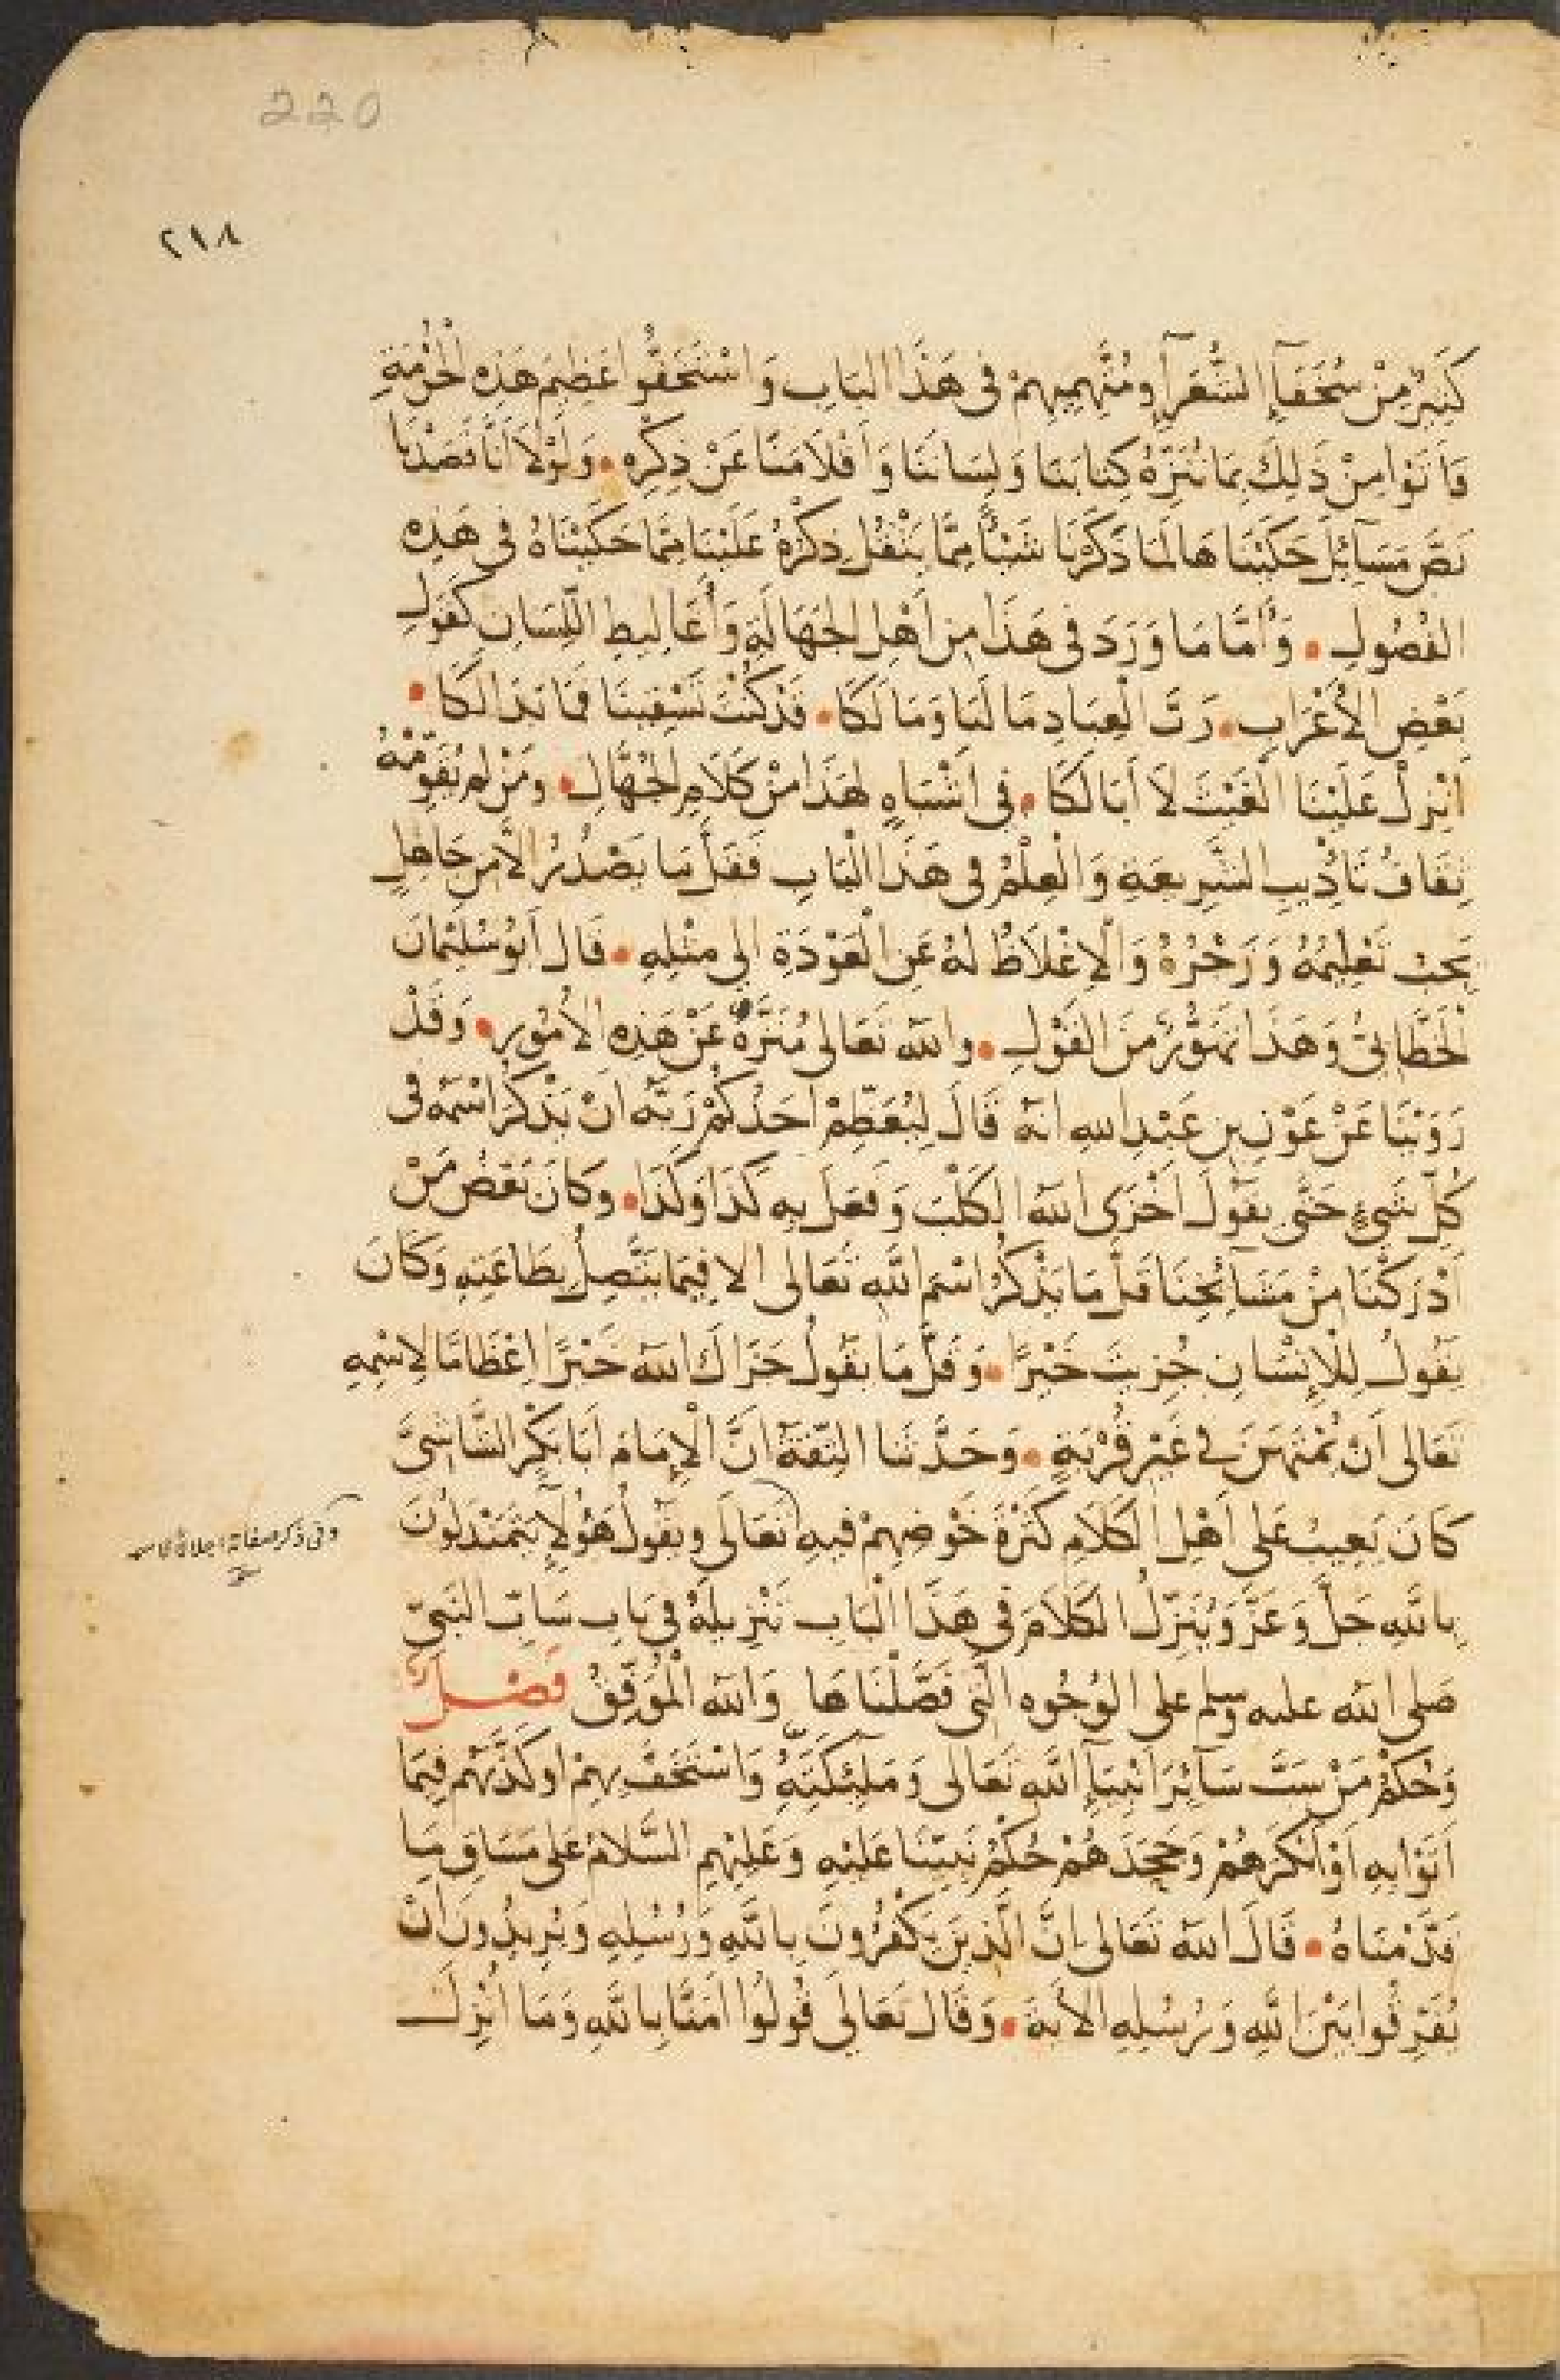 220
٢١٨
كَثِيرٌ مِنْ سُخَفَآءِ الشُّعَرَآءِ وَمُتَّهَمِيهِمْ فِى هَذَا الْبَابِ وَاسْتَخَفُّوا عَظِيمَ هَذِهِ الْحُرْمَةِ
فَاَتَوْا مِنْ ذَلِكَ بِمَا نُنَزِّهُ كِتَابَنَا وَلِسَانَنَا وَاَقْلَامَنَا عَنْ ذِكْرِهِ • وَلَوْلَا اَنَّا قَصَدْنَا
نَصَّ مَسَآئِلَ حَكَيْنَاهَا لَمَا ذَكَرْنَا شَيْئًا مِمَّا يَثْقُلُ ذِكْرُهُ عَلَيْنَا مِمَّا حَكَيْنَاهُ فِى هَذِهِ
الْفُصُولِ • وَاَمَّا مَا وَرَدَ فِى هَذَا مِنْ اَهْلِ الْجَهَالَةِ وَاَغَالِيطِ اللِّسَانِ كَقَوْلِ
بَعْضِ الْاَعْرَابِ • رَبَّ الْعِبَادِ مَا لَنَا وَمَا لَكَا • قَدْ كُنْتَ تَسْقِينَا فَمَا بَدَا لَكَا •
اَنْزِلْ عَلَيْنَا الْغَيْثَ لَا اَبَا لَكَا • فِى اَشْبَاهٍ لِهَذَا مِنْ كَلَامِ الْجُهَّالِ • وَمَنْ لَمْ يُقَوِّمْهُ
ثِقَافُ تَأْدِيبِ الشَّرِيعَةِ وَالْعِلْمُ فِى هَذَا الْبَابِ فَقَلَّ مَا يَصْدُرُ اِلَّا مِنْ جَاهِلٍ
يَجِبُ تَعْلِيمُهُ وَزَجْرُهُ وَالْاِغْلَاظُ لَهُ عَنِ الْعَوْدَةِ اِلَى مِثْلِهِ • قَالَ اَبُو سُلَيْمَانَ
الْخَطَّابِىُّ وَهَذَا تَهَوُّرٌ مِنَ الْقَوْلِ • وَاللّٰهُ تَعَالَى مُنَزَّهٌ عَنْ هَذِهِ الْاُمُورِ • وَقَدْ
رَوَيْنَا عَنْ عَوْنِ بْنِ عَبْدِ اللهِ اَنَّهُ قَالَ لِيُعَظِّمْ اَحَدُكُمْ رَبَّهُ اَنْ يَذْكُرَ اسْمَهُ فِى
كُلِّ شَىْءٍ حَتَّى يَقُولَ اَخْزَى اللّٰهُ الْكَلْبَ وَفَعَلَ بِهِ كَذَا وَكَذَا • وَكَانَ بَعْضُ مَنْ
اَدْرَكْنَا مِنْ مَشَآئِخِنَا قَلَّ مَا يَذْكُرُ اسْمَ اللّٰهِ تَعَالَى اِلَّا فِيمَا يَتَّصِلُ بِطَاعَتِهِ وَكَانَ
يَقُولُ لِلْاِنْسَانِ جُزِيتَ خَيْرًا • وَقَلَّ مَا يَقُولُ جَزَاكَ اللّٰهُ خَيْرًا اِعْظَامًا لِاسْمِهِ
تَعَالَى اَنْ يُمْتَهَنَ فِى غَيْرِ قُرْبَةٍ • وَحَدَّثَنَا الثِّقَةُ اَنَّ الْاِمَامَ اَبَا بَكْرٍ الشَّاشِىَّ
كَانَ يَعِيبُ عَلَى اَهْلِ الْكَلَامِ كَثْرَةَ خَوْضِهِمْ فِيهِ تَعَالَى وَيَقُولُ هَؤُلَآءِ يَتَمَنْدَلُونَ
وفى ذكر صفاته اجلالا لاسمه
بِاللّٰهِ جَلَّ وَعَزَّ وَيُنَزِّلُ الْكَلَامَ فِى هَذَا الْبَابِ تَنْزِيلَهُ فِى بَابِ سَابِّ النَّبِىِّ
صَلَّى اللّٰهُ عليه وسلم عَلَى الْوُجُوهِ الَّتِى فَصَّلْنَاهَا وَاللّٰهُ الْمُوَفِّقُ فَصْلٌ
وَحُكْمُ مَنْ سَبَّ سَآئِرَ اَنْبِيَآءِ اللّٰهِ تَعَالَى وَمَلٰئِكَتَهُ وَاسْتَخَفَّ بِهِمْ اَوْ كَذَّبَهُمْ فِيمَا
اَتَوْا بِهِ اَوْ اَنْكَرَهُمْ وَجَحَدَهُمْ حُكْمُ نَبِيِّنَا عَلَيْهِ وَعَلَيْهِمِ السَّلَامُ عَلَى مَسَاقِ مَا
قَدَّمْنَاهُ • قَالَ اللّٰهُ تَعَالَى اِنَّ الَّذِينَ يَكْفُرُونَ بِاللّٰهِ وَرُسُلِهِ وَيُرِيدُونَ اَنْ
يُفَرِّقُوا بَيْنَ اللّٰهِ وَرُسُلِهِ الْاٰيَةَ • وَقَالَ تَعَالَى قُولُوا اٰمَنَّا بِاللّٰهِ وَمَا اُنْزِلَ